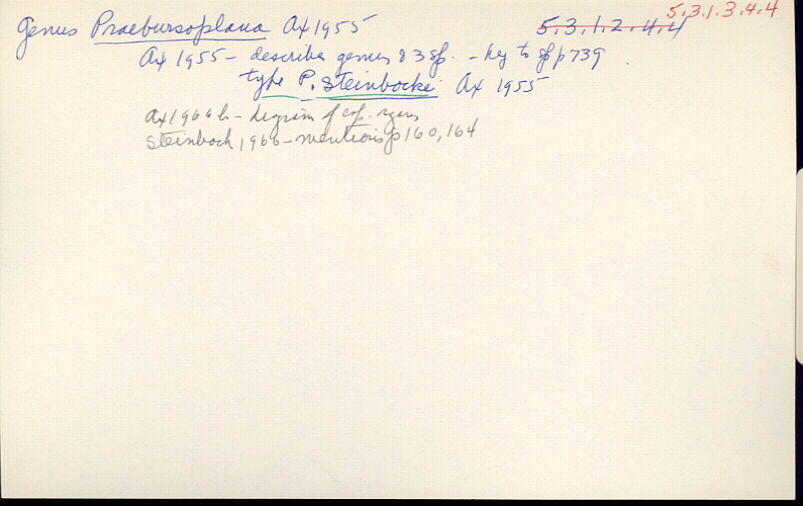 5.3.1.3.4.4
Genus Praebursoplana Ax 1955 5.3.1.2.4.4
Ax 1955 - describes genus & 3 sp. - key to sp p 739
type P. steinbocki Ax 1955
Ax 1966 b - diagram of cop. organs
Steinbock, 1966 - mentions p 160, 164